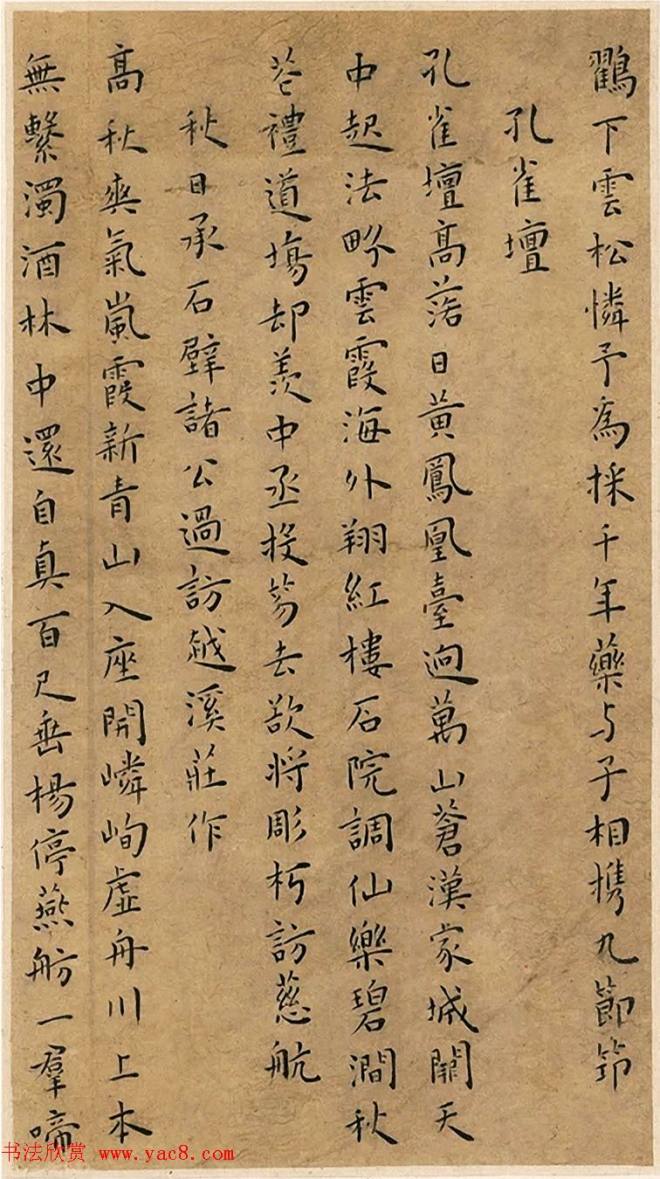 鸛下雲松憐予為採千年藥与子相携九節笻
孔雀壇
孔雀壇高落日黃鳳凰臺迥萬山蒼漢家城闕天
中起法畧雲霞海外翔紅樓石院調仙樂碧澗秋
花禮道場却羨中丞投笏去欲將彫朽訪慈航
秋日承石壁諸公過訪越溪莊作
高秋爽氣嵐霞新青山入座開嶙峋虛舟川上本
無繫濁酒林中還自真百尺垂楊停燕舫一羣啼
书法欣赏 www.yac8.com